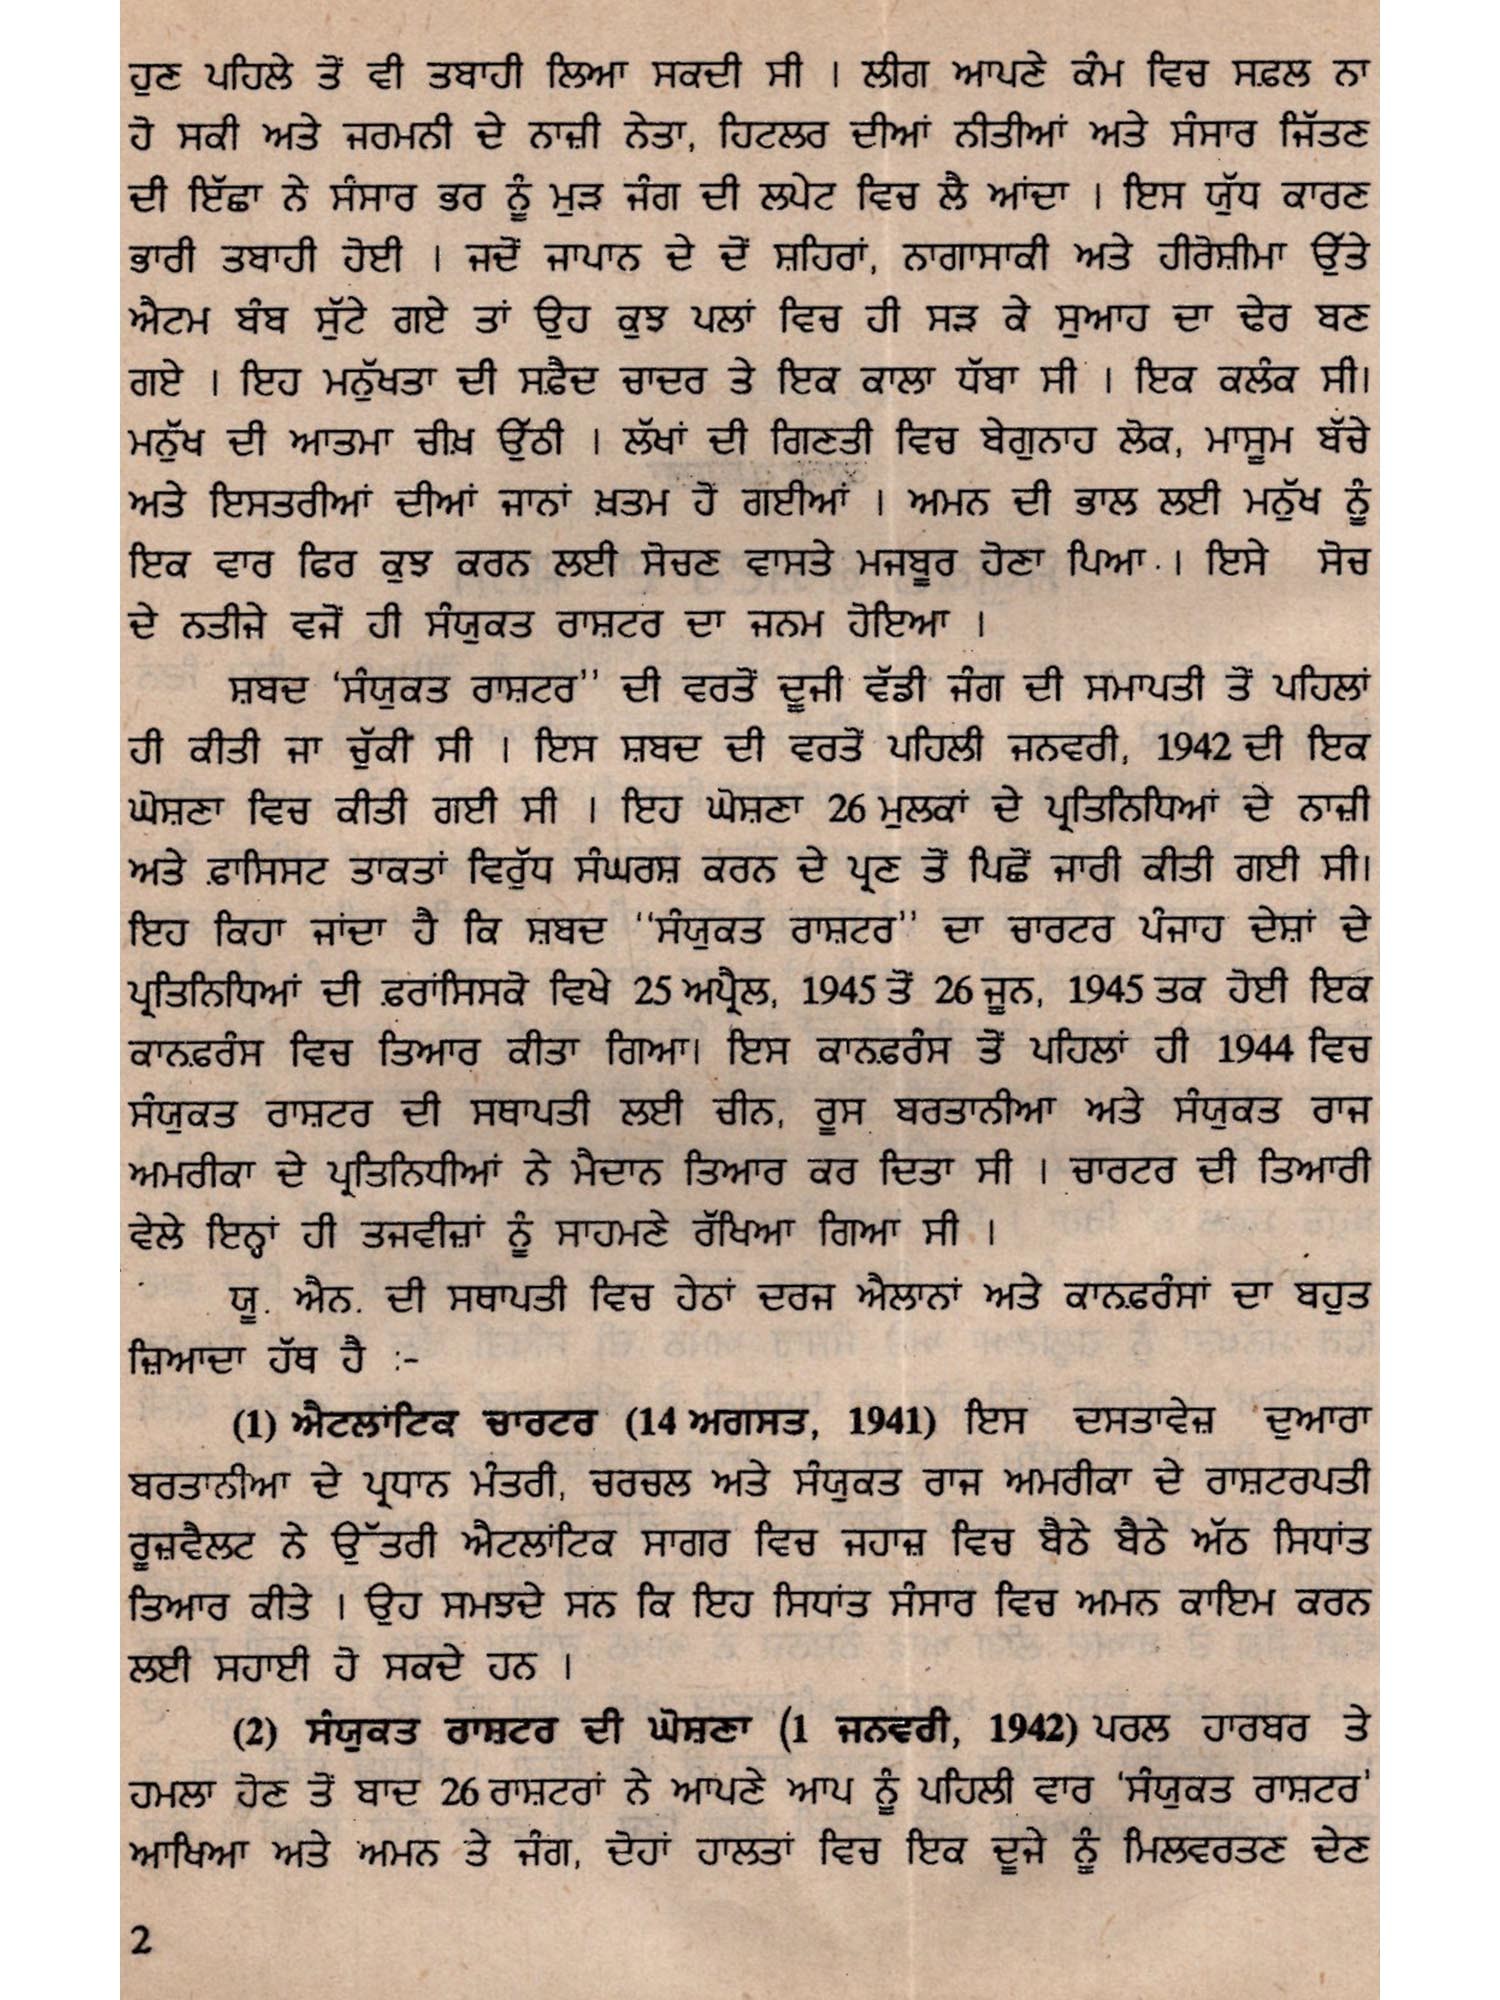 ਹੁਣ ਪਹਿਲੇ ਤੋਂ ਵੀ ਤਬਾਹੀ ਲਿਆ ਸਕਦੀ ਸੀ । ਲੀਗ ਆਪਣੇ ਕੰਮ ਵਿਚ ਸਫ਼ਲ ਨਾ
ਹੋ ਸਕੀ ਅਤੇ ਜਰਮਨੀ ਦੇ ਨਾਜ਼ੀ ਨੇਤਾ, ਹਿਟਲਰ ਦੀਆਂ ਨੀਤੀਆਂ ਅਤੇ ਸੰਸਾਰ ਜਿੱਤਣ
ਦੀ ਇੱਛਾ ਨੇ ਸੰਸਾਰ ਭਰ ਨੂੰ ਮੁੜ ਜੰਗ ਦੀ ਲਪੇਟ ਵਿਚ ਲੈ ਆਂਦਾ । ਇਸ ਯੁੱਧ ਕਾਰਣ
ਭਾਰੀ ਤਬਾਹੀ ਹੋਈ । ਜਦੋਂ ਜਾਪਾਨ ਦੇ ਦੋਂ ਸ਼ਹਿਰਾਂ, ਨਾਗਾਸਾਕੀ ਅਤੇ ਹੀਰੋਸ਼ੀਮਾ ਉੱਤੇ
ਐਟਮ ਬੰਬ ਸੁੱਟੇ ਗਏ ਤਾਂ ਉਹ ਕੁਝ ਪਲਾਂ ਵਿਚ ਹੀ ਸੜ ਕੇ ਸੁਆਹ ਦਾ ਢੇਰ ਬਣ
ਗਏ । ਇਹ ਮਨੁੱਖਤਾ ਦੀ ਸਫ਼ੈਦ ਚਾਦਰ ਤੇ ਇਕ ਕਾਲਾ ਧੱਬਾ ਸੀ । ਇਕ ਕਲੰਕ ਸੀ।
ਮਨੁੱਖ ਦੀ ਆਤਮਾ ਚੀਖ਼ ਉੱਠੀ । ਲੱਖਾਂ ਦੀ ਗਿਣਤੀ ਵਿਚ ਬੇਗੁਨਾਹ ਲੋਕ, ਮਾਸੂਮ ਬੱਚੇ
ਅਤੇ ਇਸਤਰੀਆਂ ਦੀਆਂ ਜਾਨਾਂ ਖ਼ਤਮ ਹੋ ਗਈਆਂ । ਅਮਨ ਦੀ ਭਾਲ ਲਈ ਮਨੁੱਖ ਨੂੰ
ਇਕ ਵਾਰ ਫਿਰ ਕੁਝ ਕਰਨ ਲਈ ਸੋਚਣ ਵਾਸਤੇ ਮਜਬੂਰ ਹੋਣਾ ਪਿਆ । ਇਸੇ ਸੋਚ
ਦੇ ਨਤੀਜੇ ਵਜੋਂ ਹੀ ਸੰਯੁਕਤ ਰਾਸ਼ਟਰ ਦਾ ਜਨਮ ਹੋਇਆ ।
ਸ਼ਬਦ ‘ਸੰਯੁਕਤ ਰਾਸ਼ਟਰ’’ ਦੀ ਵਰਤੋਂ ਦੂਜੀ ਵੱਡੀ ਜੰਗ ਦੀ ਸਮਾਪਤੀ ਤੋਂ ਪਹਿਲਾਂ
ਹੀ ਕੀਤੀ ਜਾ ਚੁੱਕੀ ਸੀ । ਇਸ ਸ਼ਬਦ ਦੀ ਵਰਤੋਂ ਪਹਿਲੀ ਜਨਵਰੀ, 1942 ਦੀ ਇਕ
ਘੋਸ਼ਣਾ ਵਿਚ ਕੀਤੀ ਗਈ ਸੀ । ਇਹ ਘੋਸ਼ਣਾ 26 ਮੁਲਕਾਂ ਦੇ ਪ੍ਰਤਿਨਿਧਿਆਂ ਦੇ ਨਾਜ਼ੀ
ਅਤੇ ਫ਼ਾਸਿਸਟ ਤਾਕਤਾਂ ਵਿਰੁੱਧ ਸੰਘਰਸ਼ ਕਰਨ ਦੇ ਪ੍ਰਣ ਤੋਂ ਪਿਛੋਂ ਜਾਰੀ ਕੀਤੀ ਗਈ ਸੀ।
ਇਹ ਕਿਹਾ ਜਾਂਦਾ ਹੈ ਕਿ ਸ਼ਬਦ ‘‘ਸੰਯੁਕਤ ਰਾਸ਼ਟਰ’’ ਦਾ ਚਾਰਟਰ ਪੰਜਾਹ ਦੇਸ਼ਾਂ ਦੇ
ਪ੍ਰਤਿਨਿਧਿਆਂ ਦੀ ਫ਼ਰਾਂਸਿਸਕੋ ਵਿਖੇ 25 ਅਪ੍ਰੈਲ, 1945 ਤੋਂ 26 ਜੂਨ, 1945 ਤਕ ਹੋਈ ਇਕ
ਕਾਨਫ਼ਰੰਸ ਵਿਚ ਤਿਆਰ ਕੀਤਾ ਗਿਆ। ਇਸ ਕਾਨਫ਼ਰੰਸ ਤੋਂ ਪਹਿਲਾਂ ਹੀ 1944 ਵਿਚ
ਸੰਯੁਕਤ ਰਾਸ਼ਟਰ ਦੀ ਸਥਾਪਤੀ ਲਈ ਚੀਨ, ਰੂਸ ਬਰਤਾਨੀਆ ਅਤੇ ਸੰਯੁਕਤ ਰਾਜ
ਅਮਰੀਕਾ ਦੇ ਪ੍ਰਤਿਨਿਧੀਆਂ ਨੇ ਮੈਦਾਨ ਤਿਆਰ ਕਰ ਦਿਤਾ ਸੀ । ਚਾਰਟਰ ਦੀ ਤਿਆਰੀ
ਵੇਲੇ ਇਨ੍ਹਾਂ ਹੀ ਤਜਵੀਜ਼ਾਂ ਨੂੰ ਸਾਹਮਣੇ ਰੱਖਿਆ ਗਿਆ ਸੀ ।
ਯੂ. ਐਨ. ਦੀ ਸਥਾਪਤੀ ਵਿਚ ਹੇਠਾਂ ਦਰਜ ਐਲਾਨਾਂ ਅਤੇ ਕਾਨਫ਼ਰੰਸਾਂ ਦਾ ਬਹੁਤ
ਜ਼ਿਆਦਾ ਹੱਥ ਹੈ :-
(1) ਐਟਲਾਂਟਿਕ ਚਾਰਟਰ (14 ਅਗਸਤ, 1941) ਇਸ ਦਸਤਾਵੇਜ਼ ਦੁਆਰਾ
ਬਰਤਾਨੀਆ ਦੇ ਪ੍ਰਧਾਨ ਮੰਤਰੀ, ਚਰਚਲ ਅਤੇ ਸੰਯੁਕਤ ਰਾਜ ਅਮਰੀਕਾ ਦੇ ਰਾਸ਼ਟਰਪਤੀ
ਰੂਜ਼ਵੈਲਟ ਨੇ ਉੱਤਰੀ ਐਟਲਾਂਟਿਕ ਸਾਗਰ ਵਿਚ ਜਹਾਜ਼ ਵਿਚ ਬੈਠੇ ਬੈਠੇ ਅੱਠ ਸਿਧਾਂਤ
ਤਿਆਰ ਕੀਤੇ । ਉਹ ਸਮਝਦੇ ਸਨ ਕਿ ਇਹ ਸਿਧਾਂਤ ਸੰਸਾਰ ਵਿਚ ਅਮਨ ਕਾਇਮ ਕਰਨ
ਲਈ ਸਹਾਈ ਹੋ ਸਕਦੇ ਹਨ ।
(2) ਸੰਯੁਕਤ ਰਾਸ਼ਟਰ ਦੀ ਘੋਸ਼ਣਾ (1 ਜਨਵਰੀ, 1942) ਪਰਲ ਹਾਰਬਰ ਤੇ
ਹਮਲਾ ਹੋਣ ਤੋਂ ਬਾਦ 26 ਰਾਸ਼ਟਰਾਂ ਨੇ ਆਪਣੇ ਆਪ ਨੂੰ ਪਹਿਲੀ ਵਾਰ ‘ਸੰਯੁਕਤ ਰਾਸ਼ਟਰ’
ਆਖਿਆ ਅਤੇ ਅਮਨ ਤੇ ਜੰਗ, ਦੋਹਾਂ ਹਾਲਤਾਂ ਵਿਚ ਇਕ ਦੂਜੇ ਨੂੰ ਮਿਲਵਰਤਣ ਦੇਣ
2